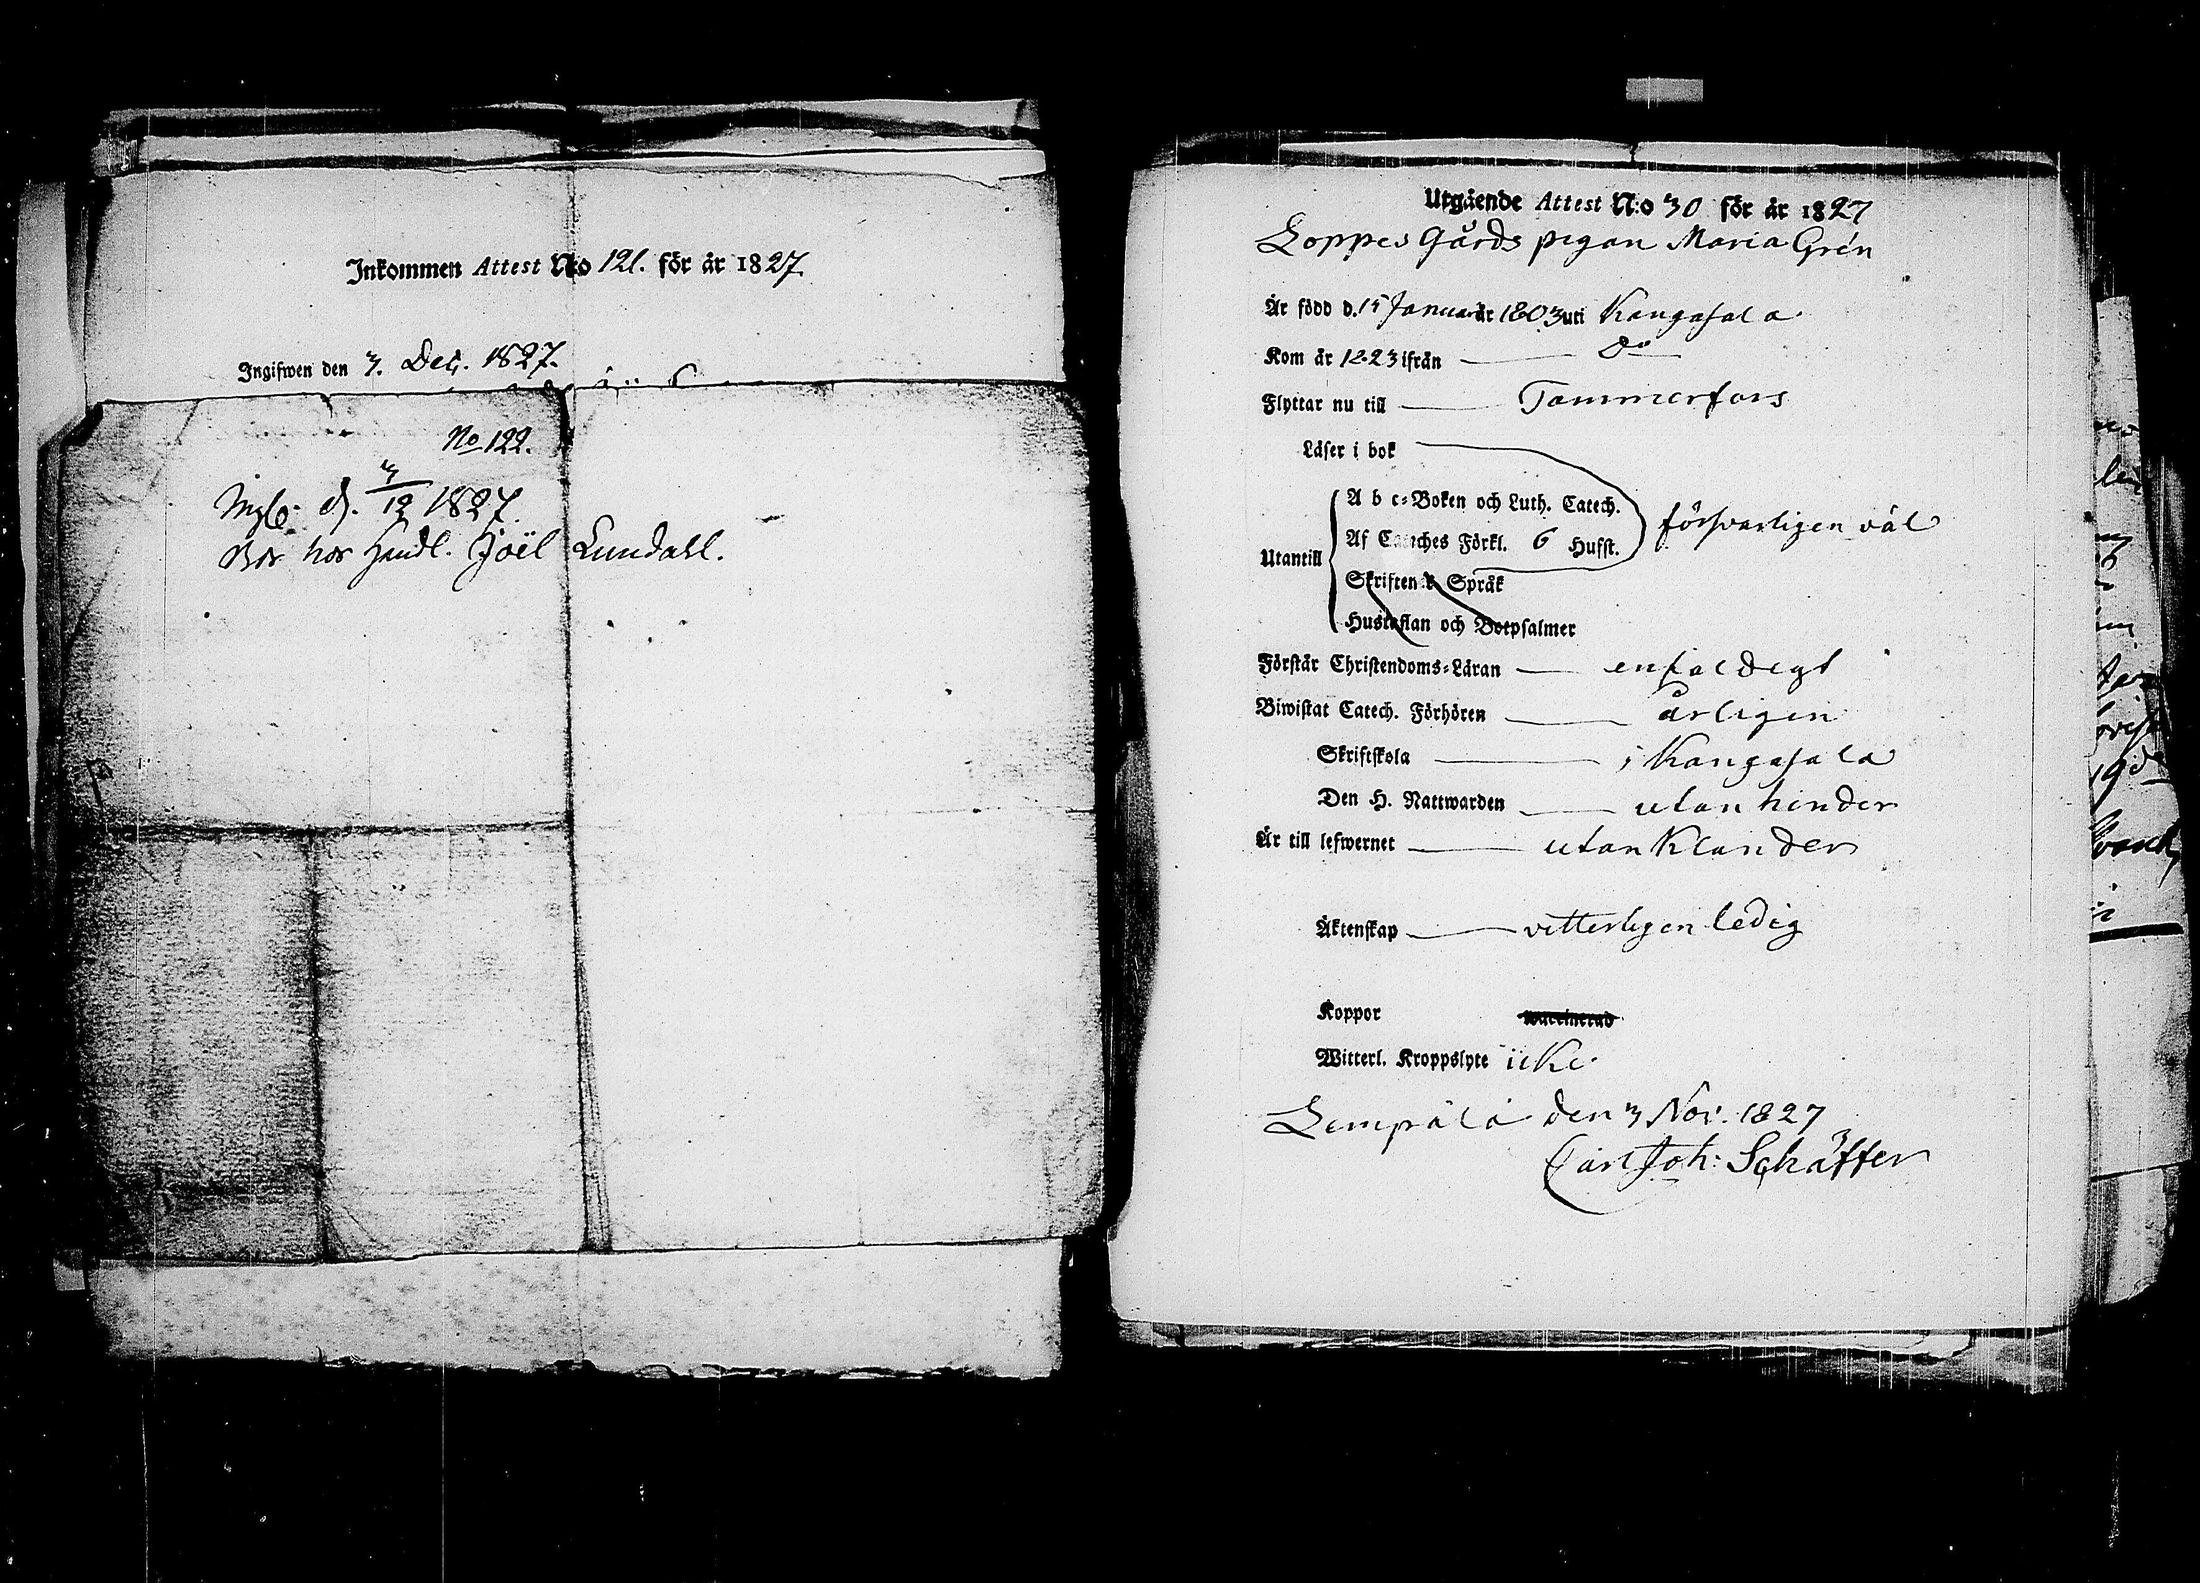 Inkommen Attest N:o 121. för år 1827.
Ingifwen den 3. Dec. 1827.
No 122.
d. 3/12 1827.
Bor hos Handl. Joël Lundahl.
Utgående Attest N:o 30 för år 1827
Loppes Gårds pigan Maria Grén
Är född d. 15 Januar år 1803 uti Kangasala
Kom år 1823 ifrån do
Flyttar nu till Tammerfors
Läser i bok
A b c=Boken och Luth. Catech.
försvarligen väl
Af Catches Förkl. 6 Hufst.
Utantill
Skriftens Språk
Hustaflan och Botpsalmer
Förstår Christendoms=Läran enfaldigt
Biwistat Catech. Förhören årligen
Skriftskola i Kangasala
Den H. Nattwarden utan hinder
Är till lefwernet utan Klander
Äktenskap vitterligen ledig
Koppor waccinerad
Witterl. Kroppslyte icke
Lempälä den 3 Nov. 1827
Carl Joh: Schäffer